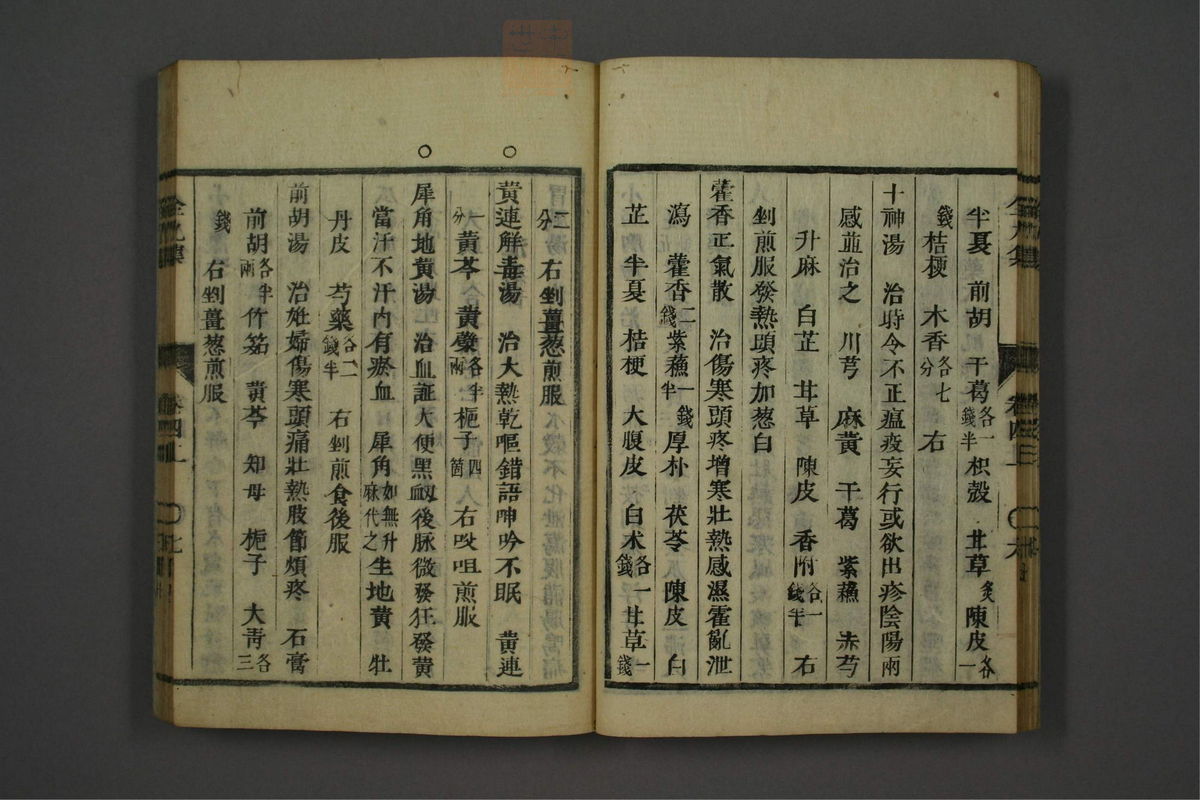 半夏 前胡 干葛各一錢半 枳殼 甘草炙 陳皮各一
錢 桔梗 木香各七分 右
十神湯 治時令不正瘟疫妄行或欲出疹陰陽兩
感並治之 川芎 麻黃 干葛 紫蘓 赤芍
升麻 白芷 甘草 陳皮 香附各一錢半 右
剉煎服發熱頭疼加葱白
藿香正氣散 治傷寒頭疼增寒壯熱感濕霍亂泄
瀉 藿香二錢 紫蘓一錢半 厚朴 茯苓 陳皮 白
芷 半夏 桔梗 大腹皮 白朮各一錢 甘草一錢
二分 右剉薑葱煎服
黃連解毒湯 治大熱乾嘔錯語呻吟不眠 黃連
一分 黃芩 黃蘗各半兩 梔子四箇 右㕮咀煎服
犀角地黃湯 治血証大便黑衂後脉微發狂發黃
當汗不汗内有瘀血 犀角如無升麻代之 生地黃 牡
丹皮 芍藥各二錢半 右剉煎食後服
前胡湯 治妊婦傷寒頭痛壯熱肢節煩疼 石膏
前胡各半兩 竹茹 黃芩 知母 梔子 大青各三
錢 右剉薑葱煎服
全九集
卷四上